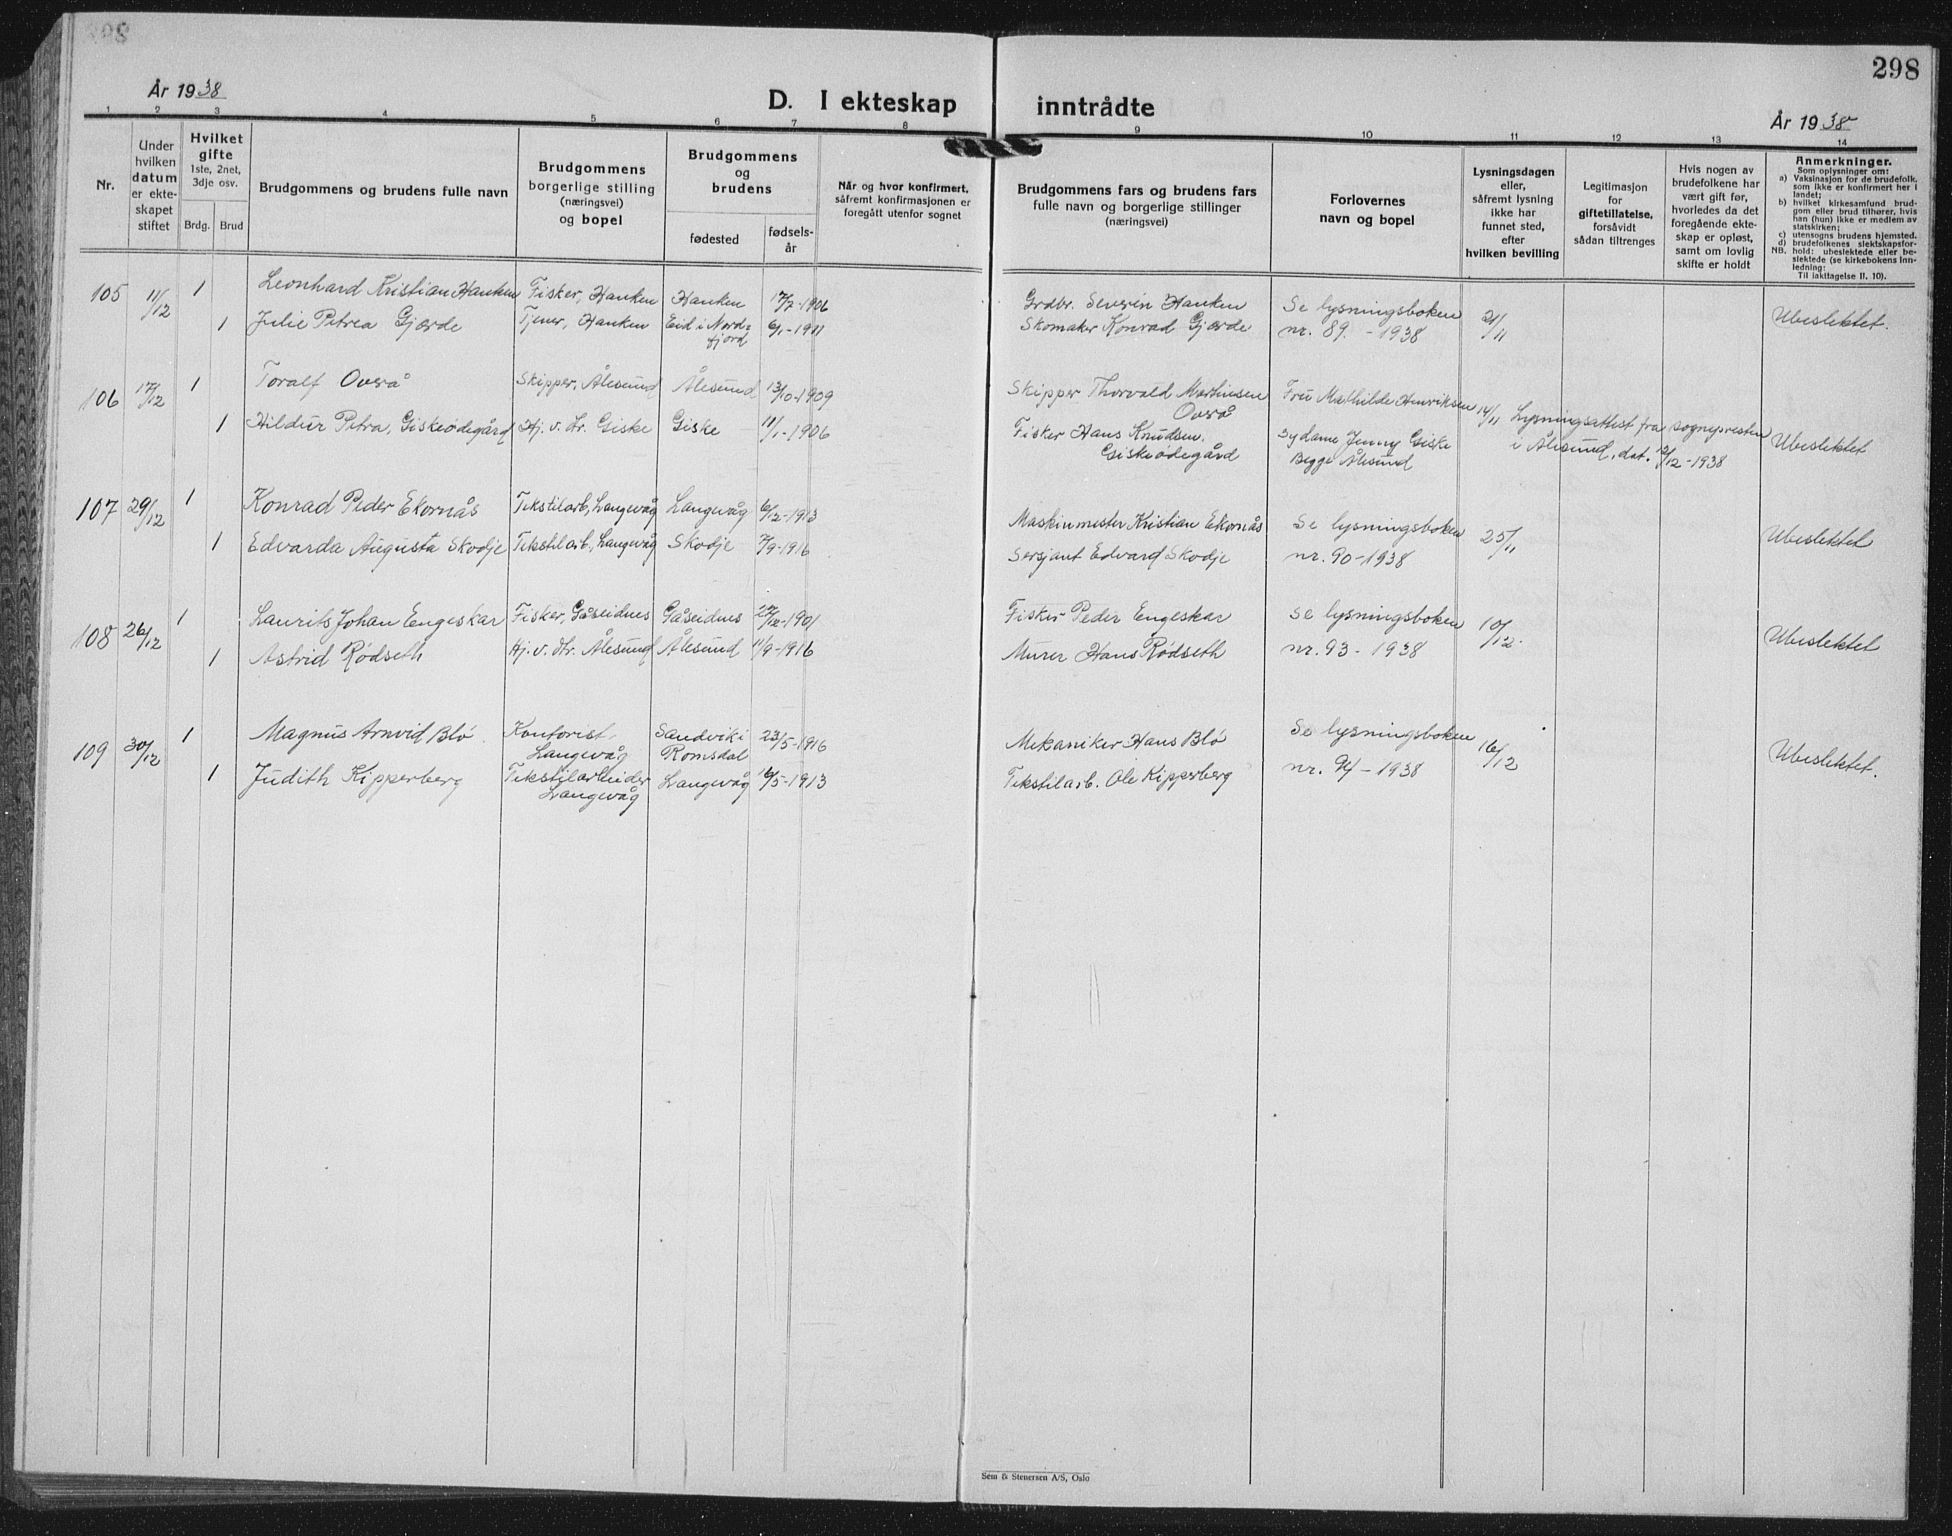 298
År 1938
D. I ekteskap inntrådte
År 1938
1 2 3 4 5 6 7 8 9 10 11 12 13 14
Nr.
Under
hvilken
datum
er ekte-
skapet
stiftet
Hvilket
gifte
1ste, 2net,
3dje osv.
Brdg. Brud
Brudgommens og brudens fulle navn
Brudgommens
borgerlige stilling
(næringsvei)
og bopel
Brudgommens
og
brudens
fødested
fødsels-
år
Når og hvor konfirmert,
såfremt konfirmasjonen er
foregått utenfor sognet
Brudgommens fars og brudens fars
fulle navn og borgerlige stillinger
(næringsvei)
Forlovernes
navn og bopel
Lysningsdagen
eller,
såfremt lysning
ikke har
funnet sted,
efter
hvilken bevilling
Legitimasjon
for
giftetillatelse,
forsåvidt
sådan tiltrenges
Hvis nogen av
brudefolkene har
vært gift før,
hvorledes da det
foregående ekte-
skap er opløst,
samt om lovlig
skifte er holdt
Anmerkninger.
Som oplysninger om:
a) Vaksinasjon for de brudefolk.
som ikke er konfirmert her i
landet;
b) hvilket kirkesamfund brud-
gom eller brud tilhører, hvis
han (hun) ikke er medlem av
statskirken;
c) utensogns brudens hjemsted.
d) brudefolkenes slektskapsfor-
hold: ubeslektede eller be-
slektede (se kirkebokens inn-
ledning:
NB.
Til iakttagelse II. 10).
105 11/12 1 Leonhard Kristian Hanken Fisker, Hanken Hanken 17/7-1906 Grdbr. Severin Hanken Se lysningsboken 21/11 Ubeslektet.
1 Julie Petrea Gjærde Tjener, Hanken Eid i Nord= 6/1-1911 Skomaker Konrad Gjærde nr. 89. - 1938
fjord
106 17/12 1 Toralf Overå Skipper, Ålesund Ålesund 13/10-1909 Skipper Thorvald Martinsen Fru Mathilde Henriksen 14/11 Lysningsattest fra sognepresten
Overå
1 Hildur Petra, Giskeødegård Hj. v. Hr. Giske Giske 11/1-1906 Fisker Hans Knudsen, Sydame Jenny Giske i Ålesund, dat. 12/12-1938 Ubeslektet
Giskeødegård Begge Ålesund
107 29/12 1 Konrad Peder Ekornås Tekstilarb, Langevåg Langevåg 6/12-1913 Maskinmester Kristian Ekornås Se lysningsboken 25/11 Ubeslektet
1 Edvarda Augusta Skodje Tekstilarb., Langevåg Skodje 7/9-1916 Sersjant Edvard Skodje nr. 90-1938
108 26/12 1 Laurits Johan Engeskar Fisker, Gåseidnes Gåseidnes 27/12-1901 Fisker Peder Engeskar Se lysningsboken 10/12. Ubeslektet
1 Astrid Rødseth Hj. v. Hr. Ålesund Ålesund 11/9-1916 Murer Hans Rødseth nr. 93 - 1938
109 30/12 1 Magnus Arnvid Blø Kontorist, Sandvik i 23/5-1916 Mekaniker Hans Blø Se lysningsboken 16/12 Ubeslektet.
Langevåg Romsdal
1 Judith Kipperberg Tekstilarbeider Langevåg 16/5-1913 Tekstilarb. Ole Kipperberg nr. 94 - 1938
Langevåg
Sem & Stenersen A/S, Oslo